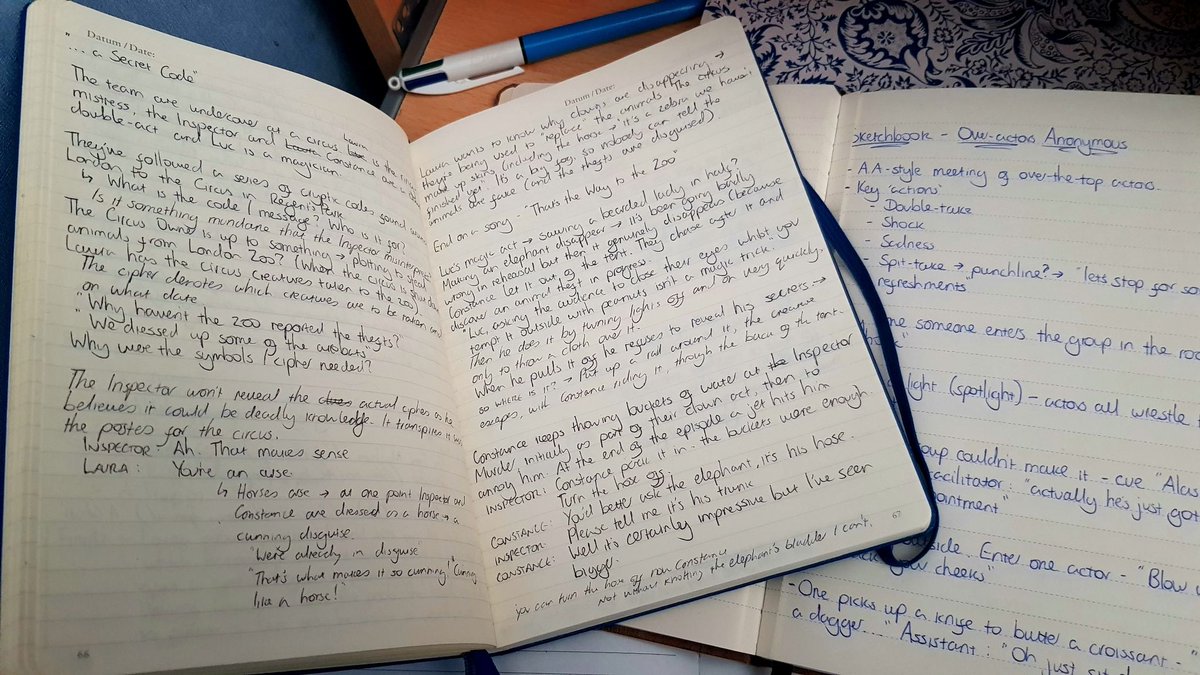 Datum / Date:
"... a Secret Code"
The team are undercover at a circus. Laura is the ring
mistress, the Inspector and Constance are a
double-act and Luc is a magician.
They've followed a series of cryptic codes found around
London to the Circus in Regent's Park.
↳ What is the code / message? Who is it for?
Is it something mundane that the Inspector misinterprets?
The Circus Owner is up to something → plotting to steal
animals from London Zoo? (When the circus is
Laura has the circus creatures taken to the zoo)
The cipher denotes which creatures are to be taken and
on what date.
"Why haven't the zoo reported the thefts?"
"We dressed up some of the acrobats"
Why were the symbols / cipher needed?
The Inspector won't reveal the actual cipher as he
believes it could be deadly knowledge. It transpires it was
the postes for the circus.
INSPECTOR: Ah. That makes sense
LAURA: You're an arse.
↳ Horses arse → at one point Inspector and
Constance are dressed as a horse → a
cunning disguise.
"We're already in disguise"
"That's what makes it so cunning!" "Cunning
like a horse!
66
Datum / Date:
Laura wants to know why clowns are disappearing →
they're being used to "replace" the animals. The circus
make up skins (including the horse → it's a zebra we haven't
finished yet. It's a big fog, so nobody can tell the
animals are fake (and the thefts are disguised)
End on a song - "That's the Way to the Zoo"
Luc's magic act → sawing a bearded lady in half?
Making an elephant disappear → it's been going badly
wrong in rehearsal but then it genuinely disappears (because
Constance let it out of the tent. They chase after it and
discover an animal theft in progress.
"Luc, asking the audience to close their eyes whilst you
tempt it outside with peanuts isn't a magic trick."
Then he does it by turning lights off and on very quickly,
only to throw a cloth over it.
When he pulls it off he refuses to reveal his secrets →
so where is it? → Put up a rail around it, the creature
escapes, with Constance riding it, through the back of the tent.
Constance keeps throwing buckets of water at the Inspector
Murder initially as part of their clown act, then to
annoy him. At the end of the episode a jet hits him
INSPECTOR: Constance pack it in... the buckets were enough.
Turn the hose off.
CONSTANCE: You'd better ask the elephant, it's his hose.
INSPECTOR: Please tell me it's his trunk
CONSTANCE: Well it's certainly impressive but I've seen
bigger.
You can turn the hose off now Constance
Not without knotting the elephant's bladder I can't.
67
Sketchbook - Over-actors Anonymous
- AA-style meeting of over-the-top actors.
- Key 'actions'
- Double-take
- Shock
- Sadness
- Spit-take → "punchline?" → "lets stop for
refreshments"
someone enters the group in the
light (spotlight) - actors all wrestle
couldn't make it - cue "Alas
facilitator: "actually he's just got
Enter one actor - "Blow
your cheeks"
- One picks up a knife to butter a croissant - "
a dagger..." Assistant: "Oh just